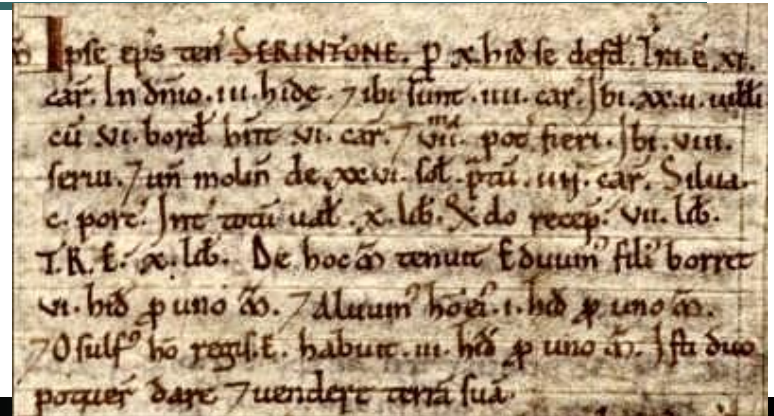 m̃ Ipse ep̃s ten̄ SERINTONE. p̱ x. hid̄ se defd̄. Tr̃a. ē. xi.
car̄. In dñio. iii. hidę. ⁊ ibi sunt. iiii. car̄. Ibi. xx. ii. uilli
cū vi. bord̄ hñt vi. car̄. ⁊ viiᵐᵃ. pot̄ fieri. Ibi. viii.
serui. ⁊ un̄ molin̄ de xxvi. sol̄. p̃tū. iiij. car̄. Silua
c. porc̄. Int̄ totū ual̄. x. lib̄. Q̃do recep̄. vii. lib̄.
T.R.E. x. lib̄. De hoc m̃ tenuit Eduuin᾽ fili᾽ borret
vi. hid̄ p̱ uno m̃. ⁊ Aluuin᾽ hō ei᾽. i. hid̄ p̱ uno m̃.
⁊ Osulf᾽ hō regis. E. habuit. iii. hid̄ p̱ uno m̃. Isti duo
potuer̄ dare ⁊ uendere terrā suā